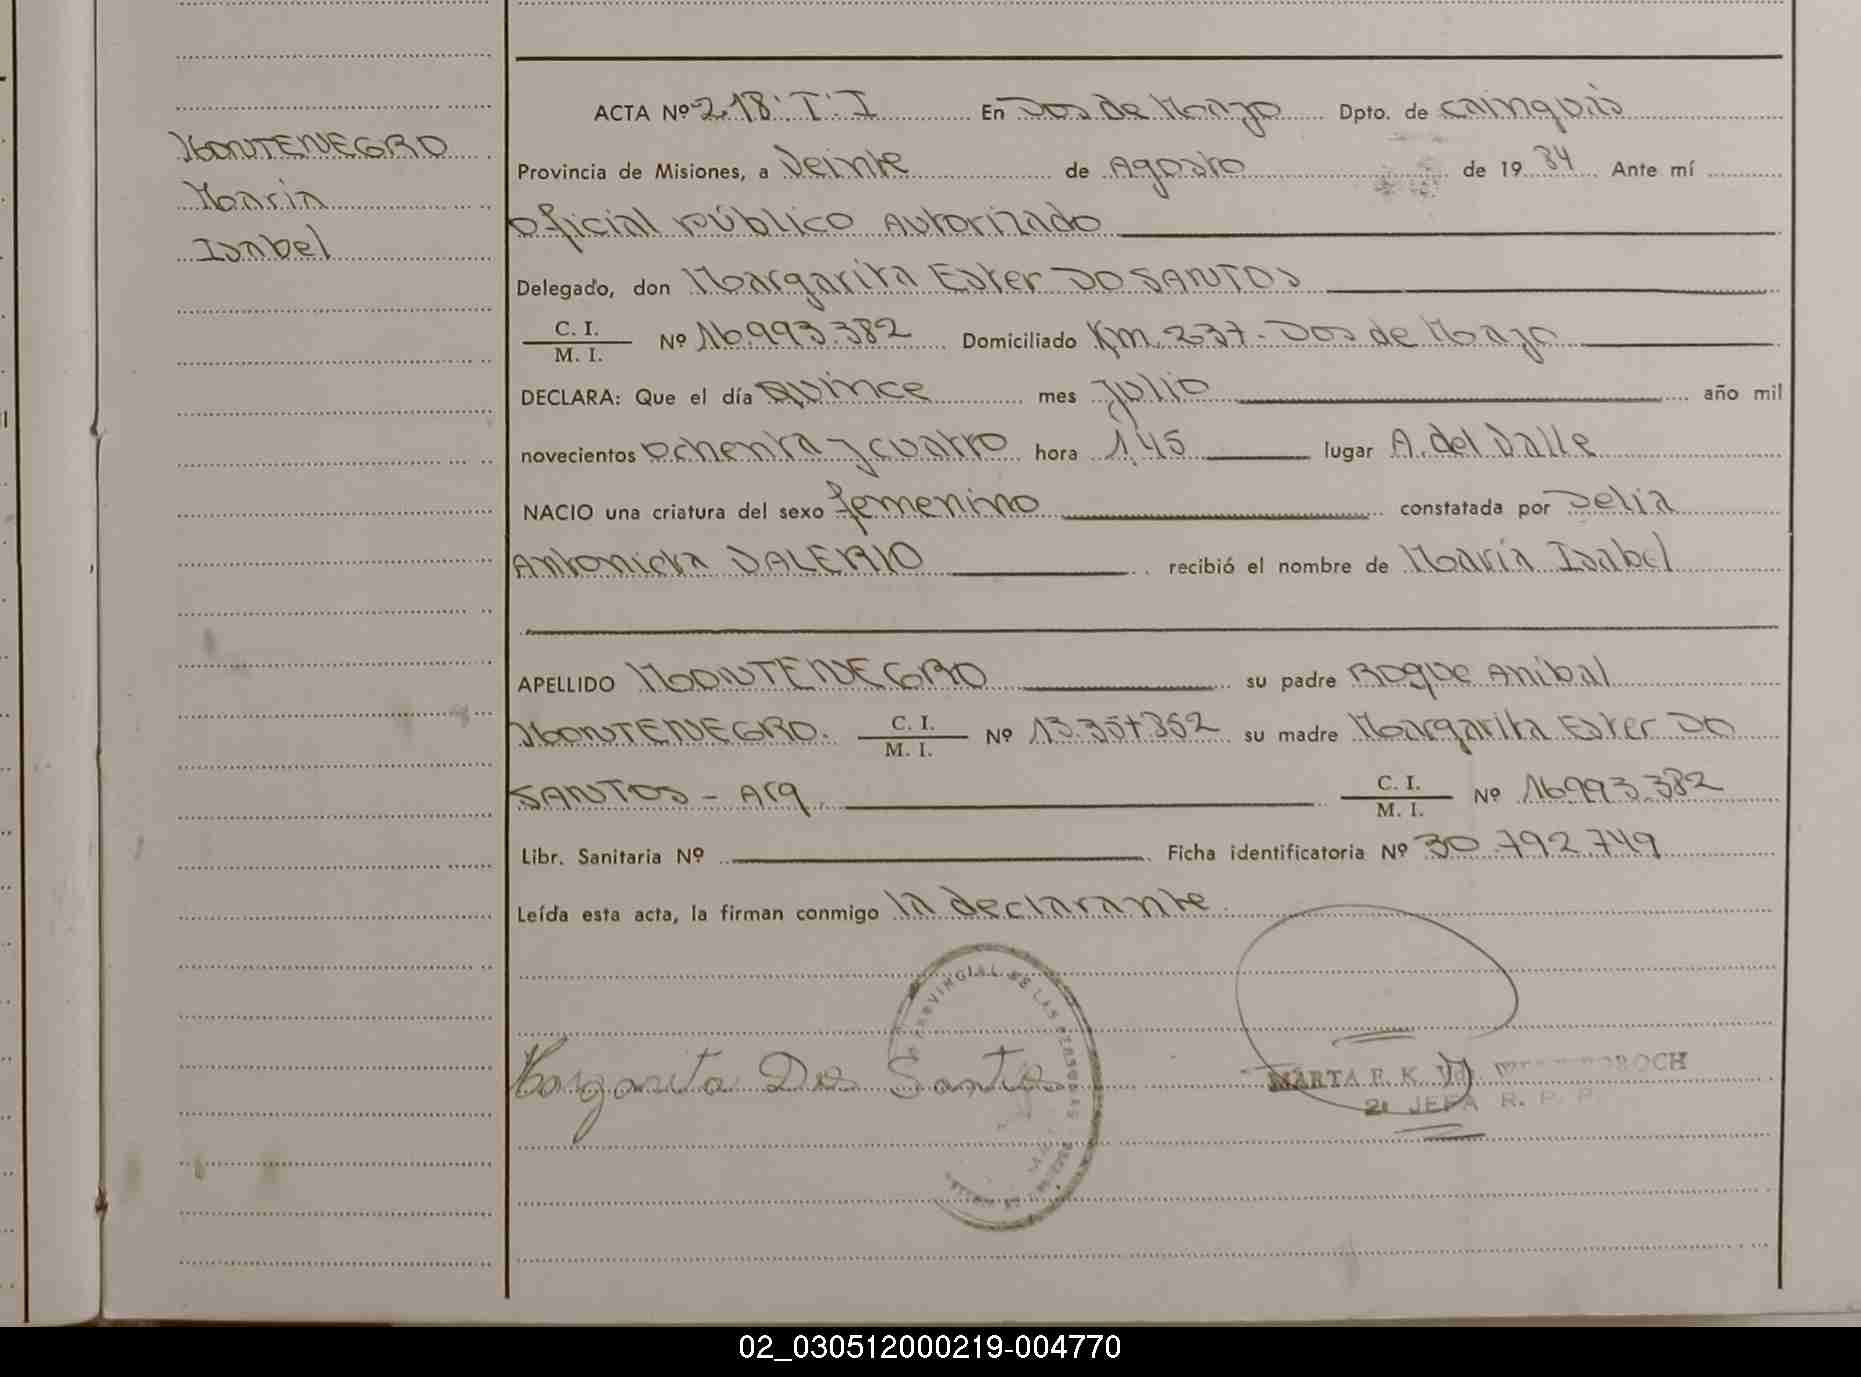 MONTENEGRO
Maria
Isabel
ACTA Nº 218. T. I En Dos de Mayo Dpto. de Cainguás
Provincia de Misiones, a Veinte de Agosto de 19 84 Ante mí
Oficial Público Autorizado
Delegado, don Margarita Ester DO SANTOS
C. I.
M. I. Nº 16.993.382 Domiciliado Km. 237 - Dos de Mayo
DECLARA: Que el día Quince mes Julio año mil
novecientos Ochenta y cuatro hora 1,45 lugar A. del Valle
NACIO una criatura del sexo femenino constatada por Delia
Antonieta VALERIO recibió el nombre de María Isabel
APELLIDO MONTENEGRO su padre Roque Anibal
MONTENEGRO. C. I.
M. I. Nº 13.357.352 su madre Margarita Ester DO
SANTOS - Arg. C. I.
M. I. Nº 16.993.382
Libr. Sanitaria Nº Ficha identificatoria Nº 30.792.749
Leída esta acta, la firman conmigo la declarante.
PROVINCIAL DE LAS PERSONAS
Margarita Dos Santos
MARTA E. K. Vd.
2ª JEFA R. P. P.
02_030512000219-004770